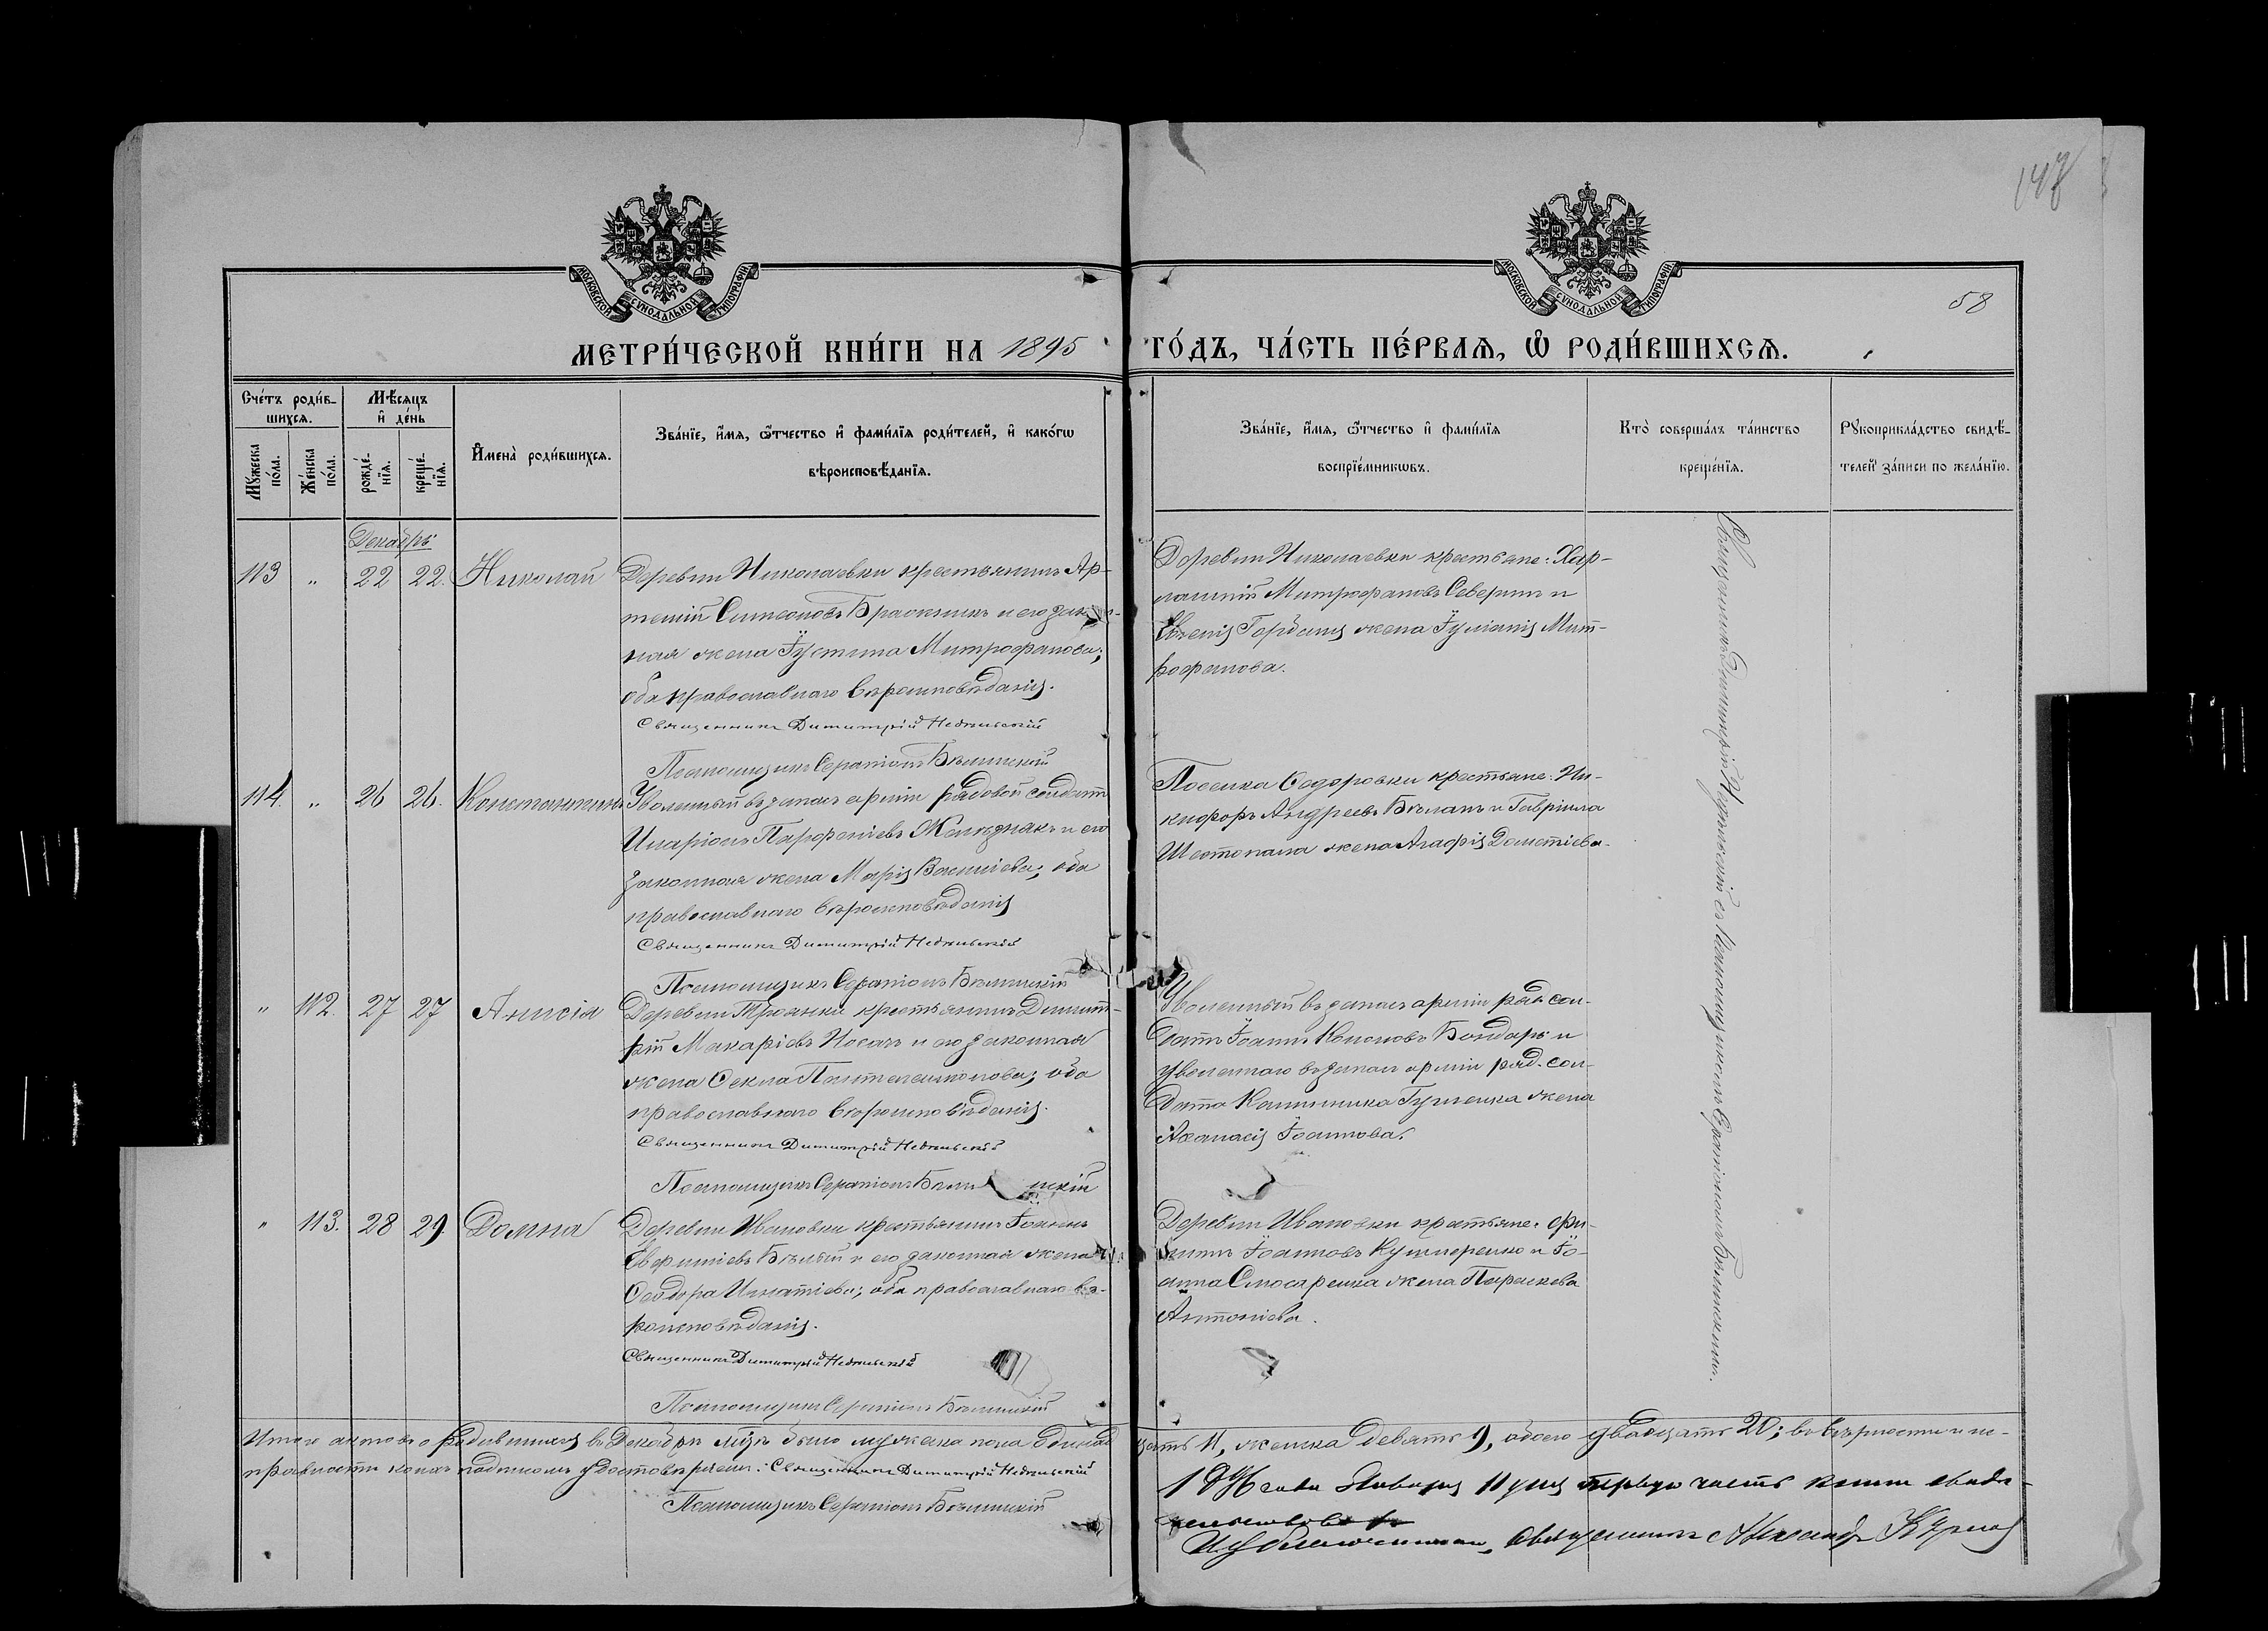 147
58
МОСКОВСКОЙ СѴНОДАЛЬНОЙ ТИПОГРАФІИ
МОСКОВСКОЙ СѴНОДАЛЬНОЙ ТИПОГРАФІИ
МЕТРИ́ЧЕСКОЙ КНИ́ГИ НА 1895 ГО́ДЪ, ЧА́СТЬ ПЕ́РВАѦ, Ѡ҆ РОДИ́ВШИХСѦ.
Сче́тъ роди́в-
шихсѧ.
Мꙋ́жеска
по́ла.
Же́нска
по́ла.
Мѣ́сѧцъ
и҆ де́нь
рожде́-
нїѧ.
креще́-
нїѧ.
И҆мена̀ роди́вшихсѧ.
Зва́нїе, и҆́мѧ, ѻ҆́тчество и҆ фами́лїѧ роди́телей, и҆ како́гѡ
вѣроисповѣ́данїѧ.
Зва́нїе, и҆́мѧ, ѻ҆́тчество и҆ фами́лїѧ
воспрїе́мникѡвъ.
Кто̀ соверша́лъ та́инство
креще́нїѧ.
Рꙋкоприкла́дство свидѣ́-
телей за́писи по жела́нїю.
Декабрь
113 „ 22 22. Николай
Деревни Николаевки крестьянинъ Ар-
темій Симеоновъ Браскникъ и его закон-
ная жена Іустина Митрофанова;
оба православнаго вѣроисповѣданія.
Священникъ Димитрій Недѣльскій
Псаломщикъ Серапіонъ Бѣлинскій
Деревни Николаевки крестьяне: Хар-
лампій Митрофановъ Северинъ и
Евгенія Гордана жена Іуліанія Мит-
рофанова.
114. „ 26 26. Константинъ
Уволенный въ запасъ арміи рядовой солдатъ
Иларіонъ Парфеніевъ Желѣзнякъ и его
законная жена Марія Василіева; оба
православнаго вѣроисповѣданія
Священникъ Димитрій Недѣльскій
Псаломщикъ Серапіонъ Бѣлинскій
Поселка Ѳедоровки крестьяне: Ни-
кифоръ Андреевъ Бѣланъ и Гавріила
Шестопала жена Агафія Дометіева.
„ 112. 27 27 Анисія
Деревни Троянки крестьянинъ Димит-
рій Макаріевъ Носачъ и его законная
жена Ѳекла Пантелеимонова; оба
православнаго вѣроисповѣданія.
Священникъ Димитрій Недѣльскій
Псаломщикъ Серапіонъ Бѣлинскій
Уволенный въ запасъ арміи ряд. сол-
датъ Іоаннъ Кононовъ Бондарь и
уволеннаго въ запасъ арміи ряд. сол-
дата Каллиника Гуменюка жена
Аѳанасія Іоаннова.
„ 113. 28 29. Домна
Деревни Ивановки крестьянинъ Іоаннъ
Евфиміевъ Бѣлый и его законная жена
Ѳеодора Игнатіева; оба православнаго вѣ-
роисповѣданія.
Священникъ Димитрій Недѣльскій
Псаломщикъ Серапіонъ Бѣлинскій
Деревни Ивановки крестьяне: Фи-
липпъ Іоанновъ Кушнеренко и Іо-
анна Слюсаренка жена Параскева
Антоніева.
Священникъ Димитрій Недѣльскій съ псаломщикомъ Серапіономъ Бѣлинскимъ.
Итого актовъ о родившихся въ Декабрѣ м-цѣ было мужеска пола одинад-
цать 11, женска девять 9, обоего двадцать 20; въ вѣрности и ис-
правности коихъ подписомъ удостовѣряемъ: Священникъ Димитрій Недѣльскій
Псаломщикъ Серапіонъ Бѣлинскій
1896 года Января 11 дня первую часть книги свидѣ-
тельствовалъ
Священникъ Александръ